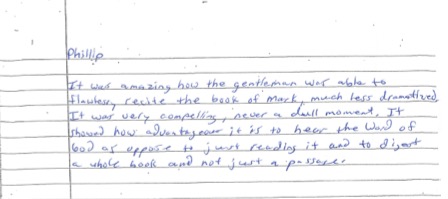 Phillip
It was amazing how the gentleman was able to
flawlessly recite the book of Mark, much less dramatized.
It was very compelling, never a dull moment. It
showed how advantageous it is to hear the Word of
God as oppose to just reading it and to digest
a whole book and not just a passage.